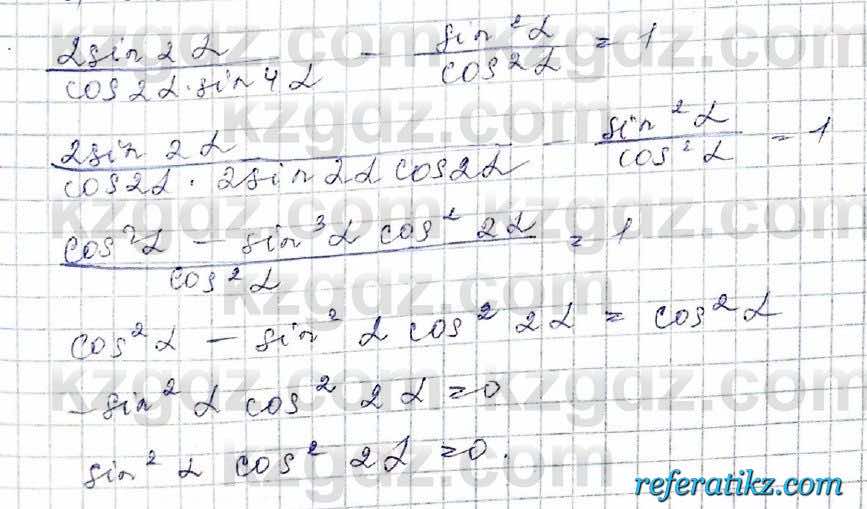 2sin 2α / cos2α·sin4α − sin²α / cos2α = 1
2sin 2α / cos2α · 2sin 2α cos2α − sin²α / cos²α = 1
cos²α − sin³α cos² 2α / cos²α = 1
cos²α − sin²α cos² 2α = cos²α
−sin²α cos² 2α = 0
sin²α cos² 2α = 0.
kzgdz.com
referatikz.com